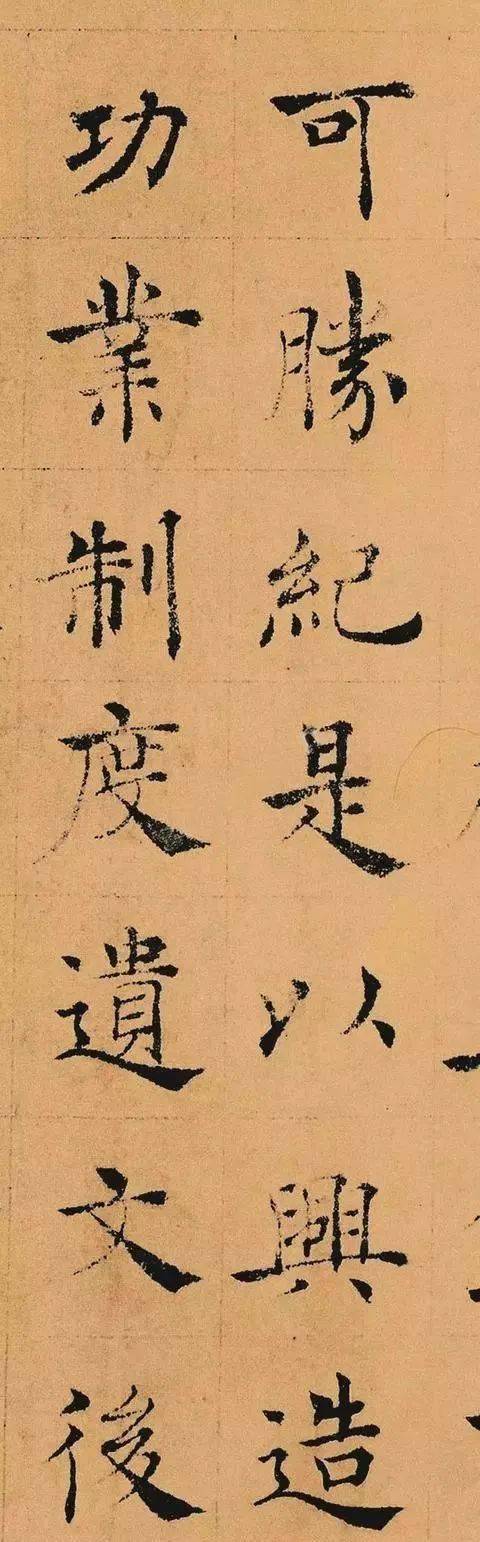 可勝紀是以興造
功業制度遺文後